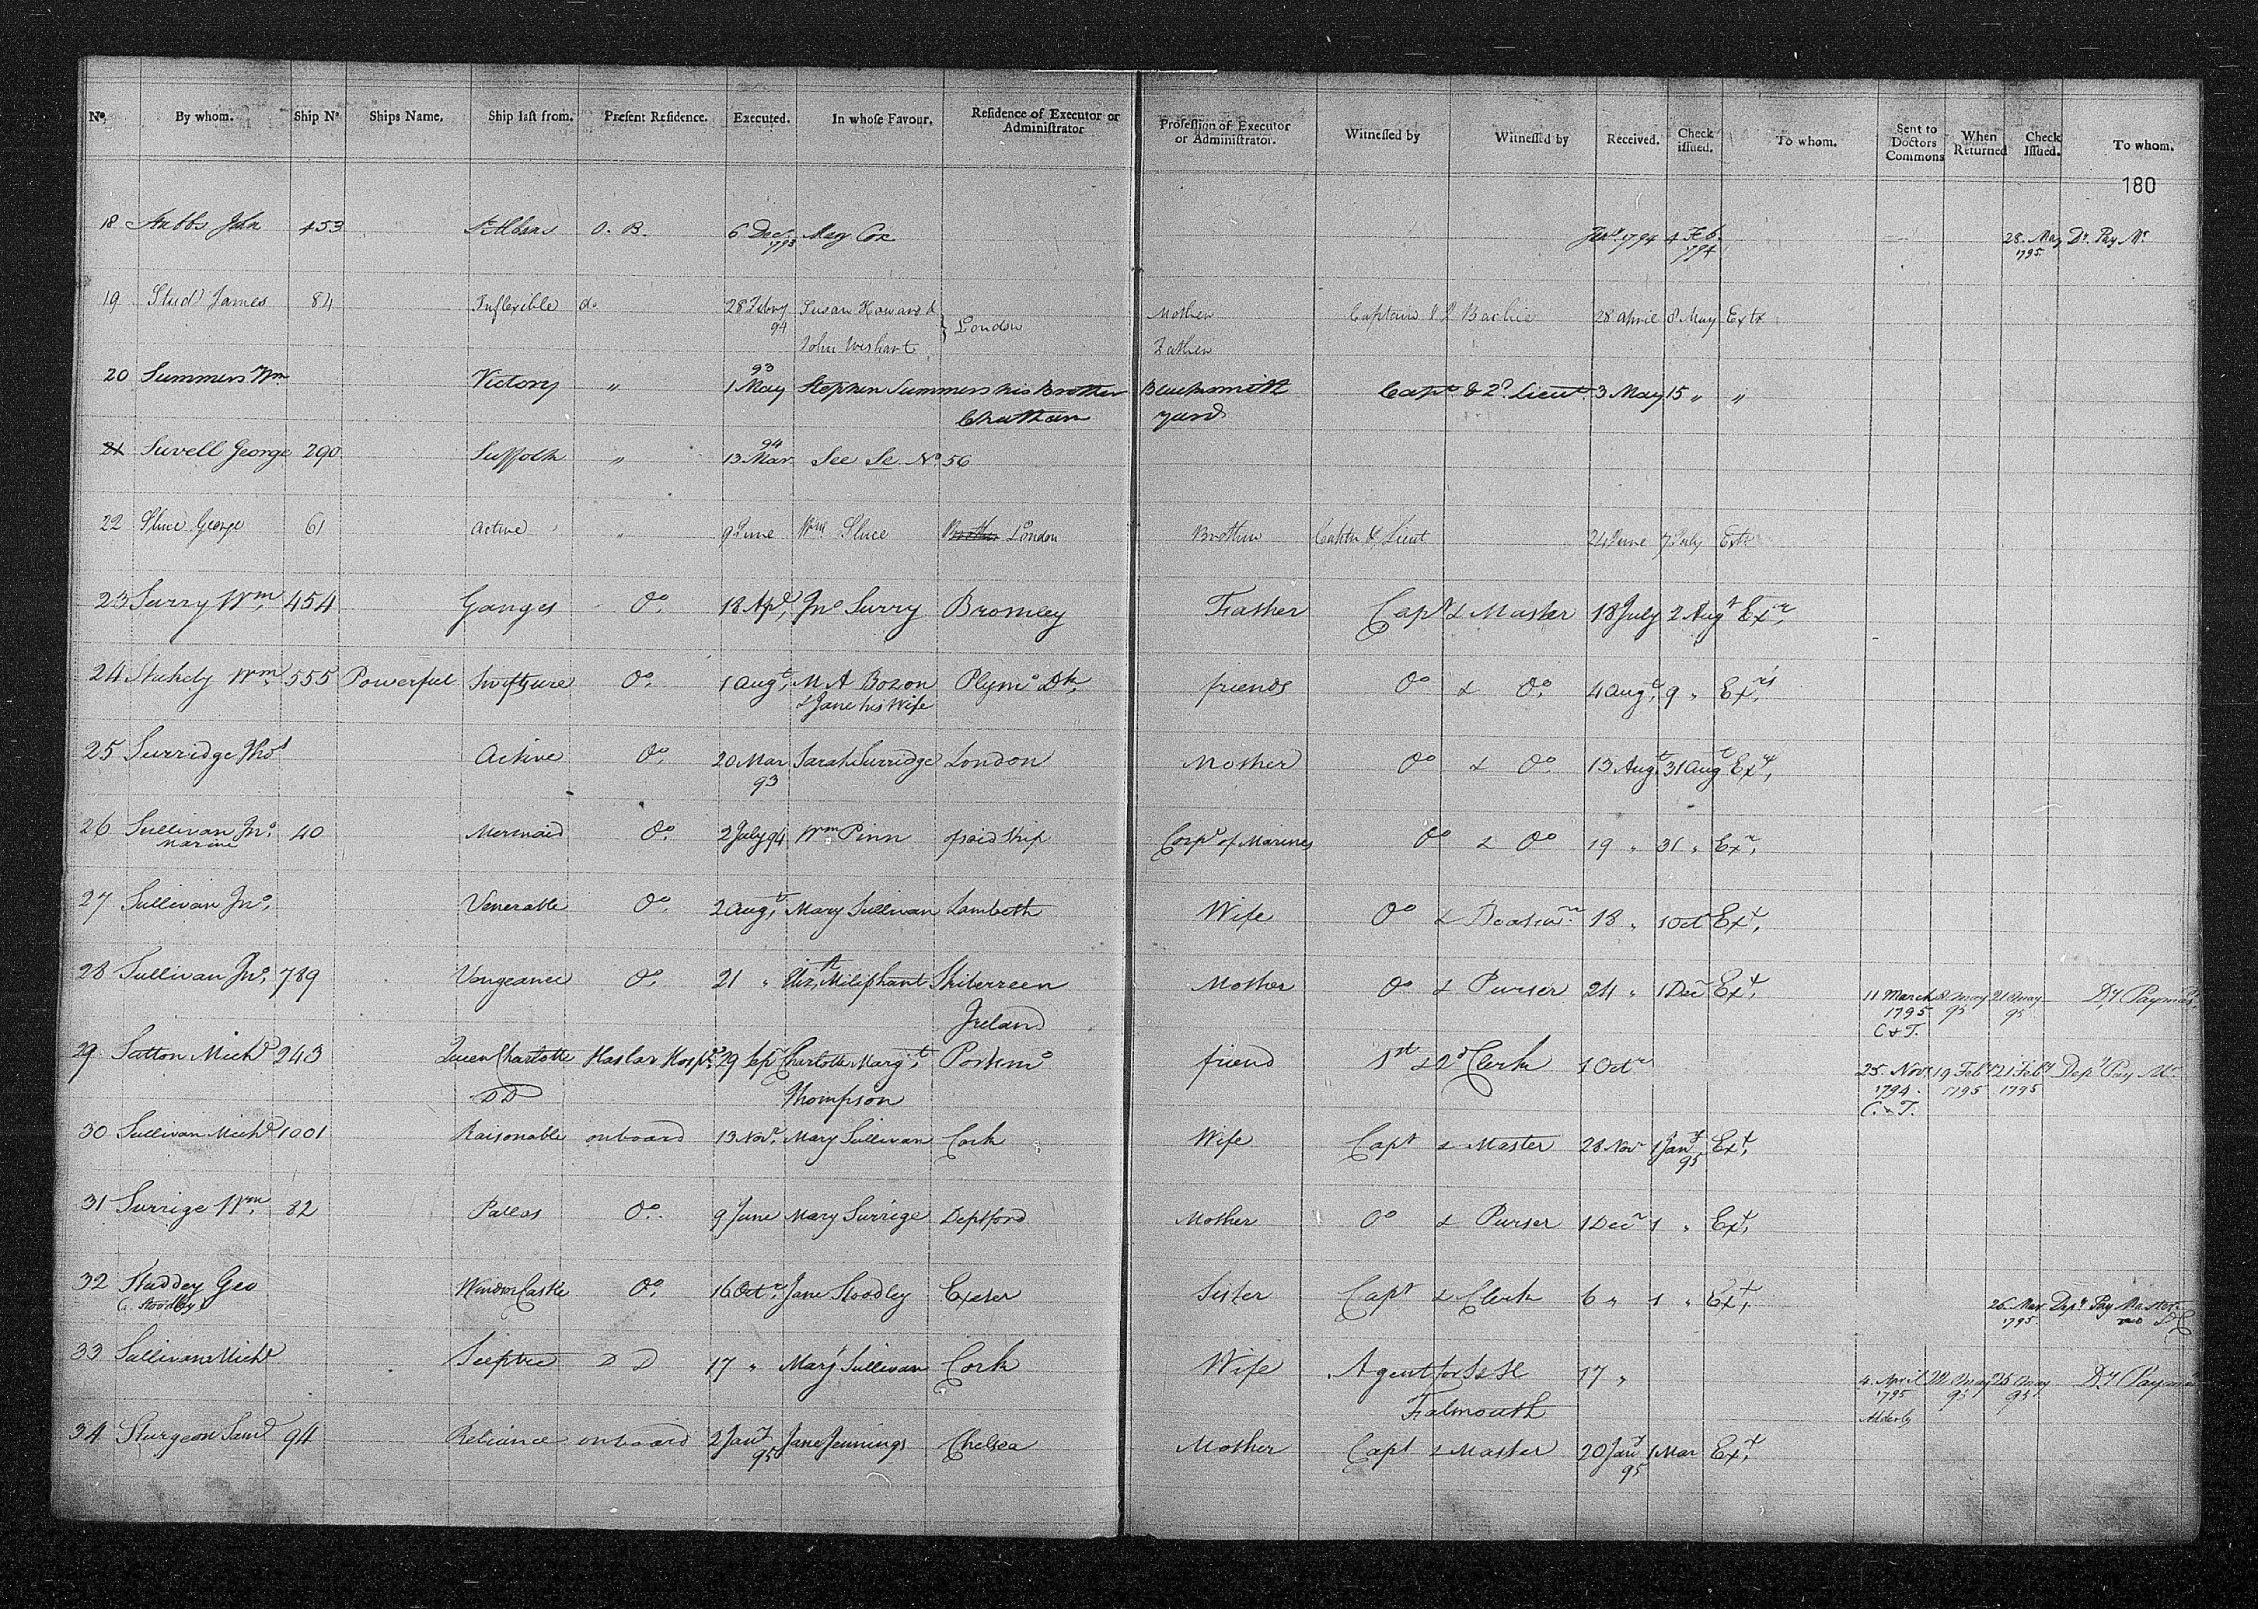 Nº. By whom. Ship Nº Ships Name, Ship last from. Present Residence. Executed. In whose Favour. Residence of Executor or Administrator Profession of Executor or Administrator. Witnessed by Witnessed by Received. Check issued. To whom. Sent to Doctors Commons When Returned Check Issued. To whom.
180
18 Stubbs John 453 St Albans O. B. 6 Dec. 1793 Mary Cox 1794 4 Feb. 1794 28. May 1795 Dr. Pay Mr
19 Stud James 84 Inflexible do. 28 Febry 94 Susan Howard & London Mother Captain & 28 April 8 May Extr
John Wishart Father
20 Summers Wm Victory " 93 1 May Stephen Summers his Brother Blacksmith Capt. & 2d. Lieut. 3 May 15 " "
Chatham yard
21 Suvell George 290 Suffolk " 94 13 Mar See Se. Nº 56
22 Sluce George 61 Active " 9 June Wm Sluce Brother London Brother Captn & Lieut 24 June 7 July Extr
23 Surry Wm. 454 Ganges Do. 18 Apl. Jno Surry Bromley Father Capt & Master 18 July 2 Augt Exr.
24 Stukely Wm. 555 Powerful Swiftsure Do. 1 Augt. M A Bozon Plymo Dk. friends Do & Do. 4 Augt. 9 " Exrs.
& Jane his Wife
25 Surridge Thos Active Do. 20 Mar 93 Sarah Surridge London Mother Do & Do. 13 Augt. 31 Augt Exx.
26 Sullivan Jno. 40 Mermaid Do. 2 July 94 Wm Pinn of said Ship Corpl of Marines Do & Do 19 " 31 " Exr.
Marine
27 Sullivan Jno. Venerable Do. 2 Augt. Mary Sullivan Lambeth Wife Do & Boatswn. 18 " 1 Oct Exx.
28 Sullivan Jno. 789 Vengeance Do. 21 " Eliz. Miliphant Skiberreen Mother Do & Purser 24 " 1 Decr Exx. 11 March 1795 C & T. May 95 21 May 95 Dy Paymr
Ireland
29 Sutton Michl 243 Queen Charlotte Haslar Hospl. 29 Sepr Charlotte Margt. Portsmo friend 1st & 2d Clerk 1 Octr 25 Novr 1794. C. & T. 19 Feby 1795 21 Feby 1795 Depy Pay Mr
DD Thompson
30 Sullivan Michl 1001 Raisonable onboard 13 Novr. Mary Sullivan Cork Wife Capt & Master 28 Nov 1 Jany 95 Exx.
31 Surrige Wm. 82 Pallas Do. 9 June Mary Surrige Deptford Mother Do & Purser 1 Decr 1 " Exx.
32 Studdey Geo Windsor Castle Do. 16 Octr. Jane Stoodley Exeter Sister Capt & Clerk 6 " 1 " Exx. 26 Mar 1795 Depy Pay Master
Stoodley
33 Sullivan Michl Sceptre D D 17 " Mary Sullivan Cork Wife Agent for S & H 17 " 4. April 1795 May 95 25 May 95 Dy Paymr
Falmouth
34 Sturgeon Saml 94 Reliance onboard 2 Jany 95 Jane Jennings Chelsea Mother Capt & Master 20 Jany 95 1 Mar Exx.